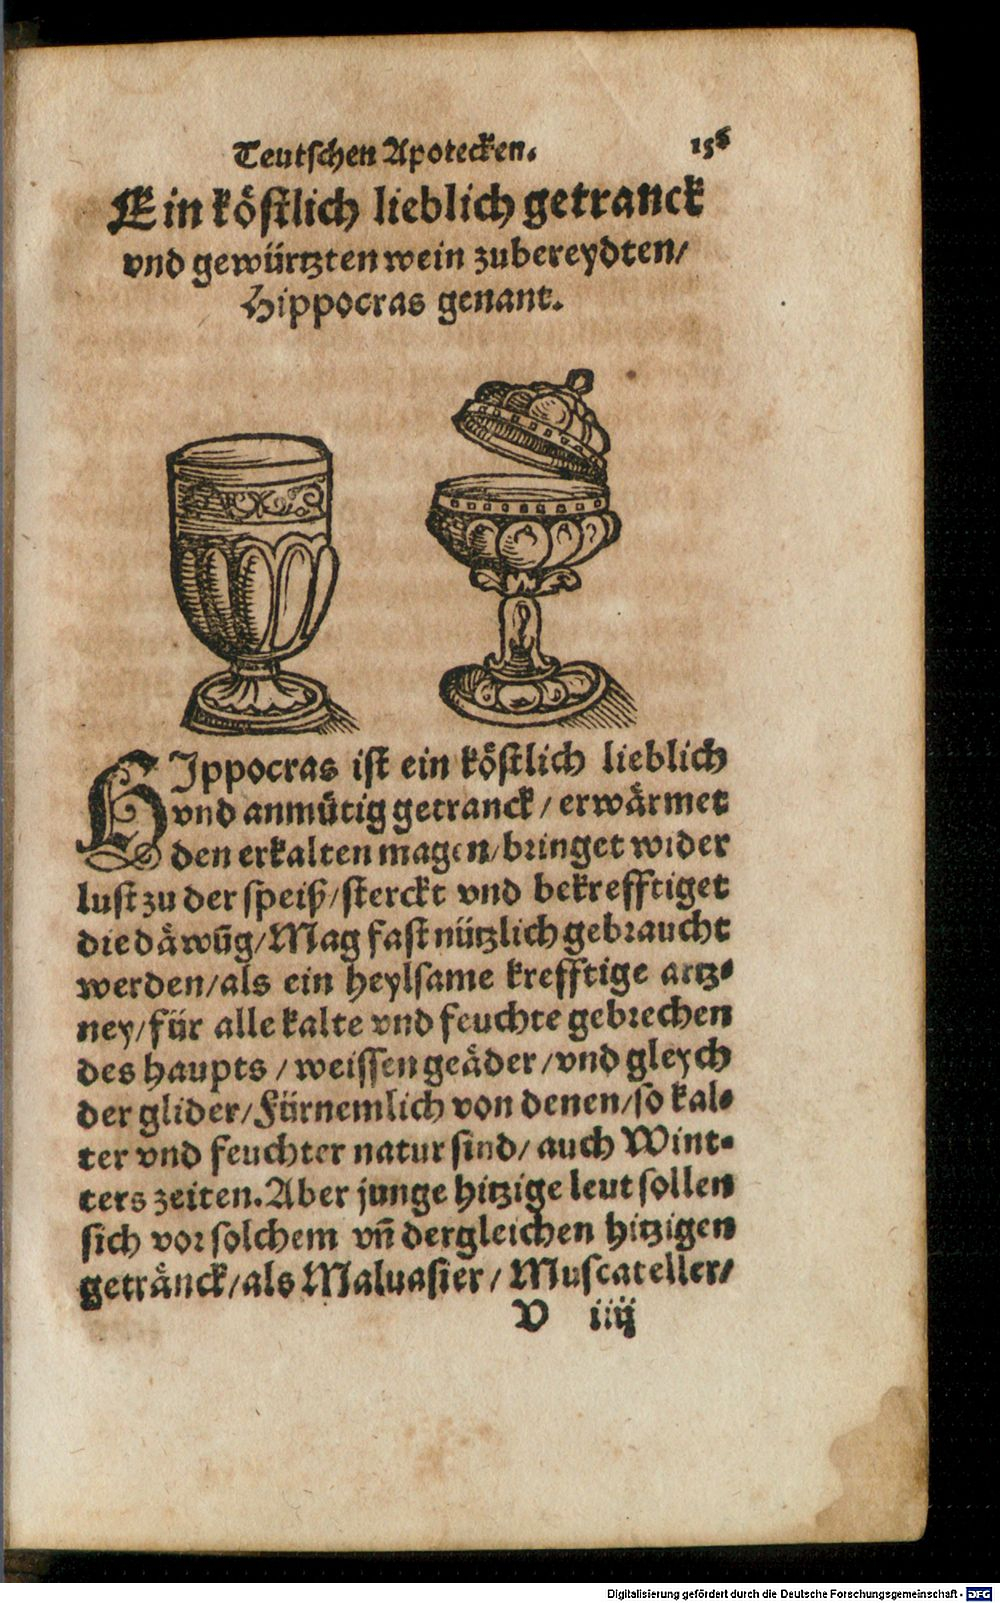 Teutschen Apotecken. 156
Ein köstlich lieblich getranck
vnd gewürtzten wein zubereydten/
Hippocras genant.
HIppocras ist ein köstlich lieblich
vnd anmütig getranck/ erwärmet
den erkalten magen/ bringet wider
lust zu der speiß/ sterckt vnd bekrefftiget
die däwūg/ Mag fast nützlich gebraucht
werden/ als ein heylsame krefftige artz-
ney/ für alle kalte vnd feuchte gebrechen
des haupts/ weissen geäder/ vnd gleych
der glider/ Fürnemlich von denen/ so kal-
ter vnd feuchter natur sind/ auch Wint-
ters zeiten. Aber junge hitzige leut sollen
sich vor solchem vñ dergleichen hitzigen
getränck/ als Maluasier/ Muscateller/
V iiij
Digitalisierung gefördert durch die Deutsche Forschungsgemeinschaft - DFG